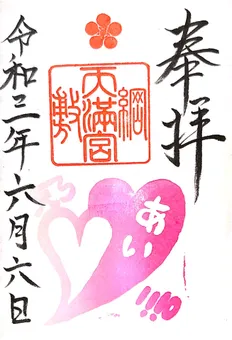 奉拝
綱敷天満宮
あい
令和三年六月六日